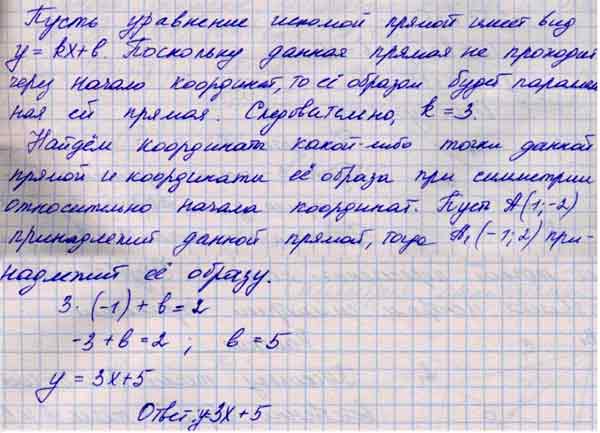 Пусть уравнение искомой прямой имеет вид
y = kx+в. Поскольку данная прямая не проходит
через начало координат, то её образом будет параллель
ная ей прямая. Следовательно, k = 3.
Найдём координаты какой-либо точки данной
прямой и координаты её образа при симметрии
относительно начала координат. Пусть A(1;-2)
принадлежит данной прямой, тогда A₁(-1;2) при-
надлежит её образу.
3·(-1)+в=2
-3+в=2; в=5
y = 3x+5
Ответ: y=3x+5